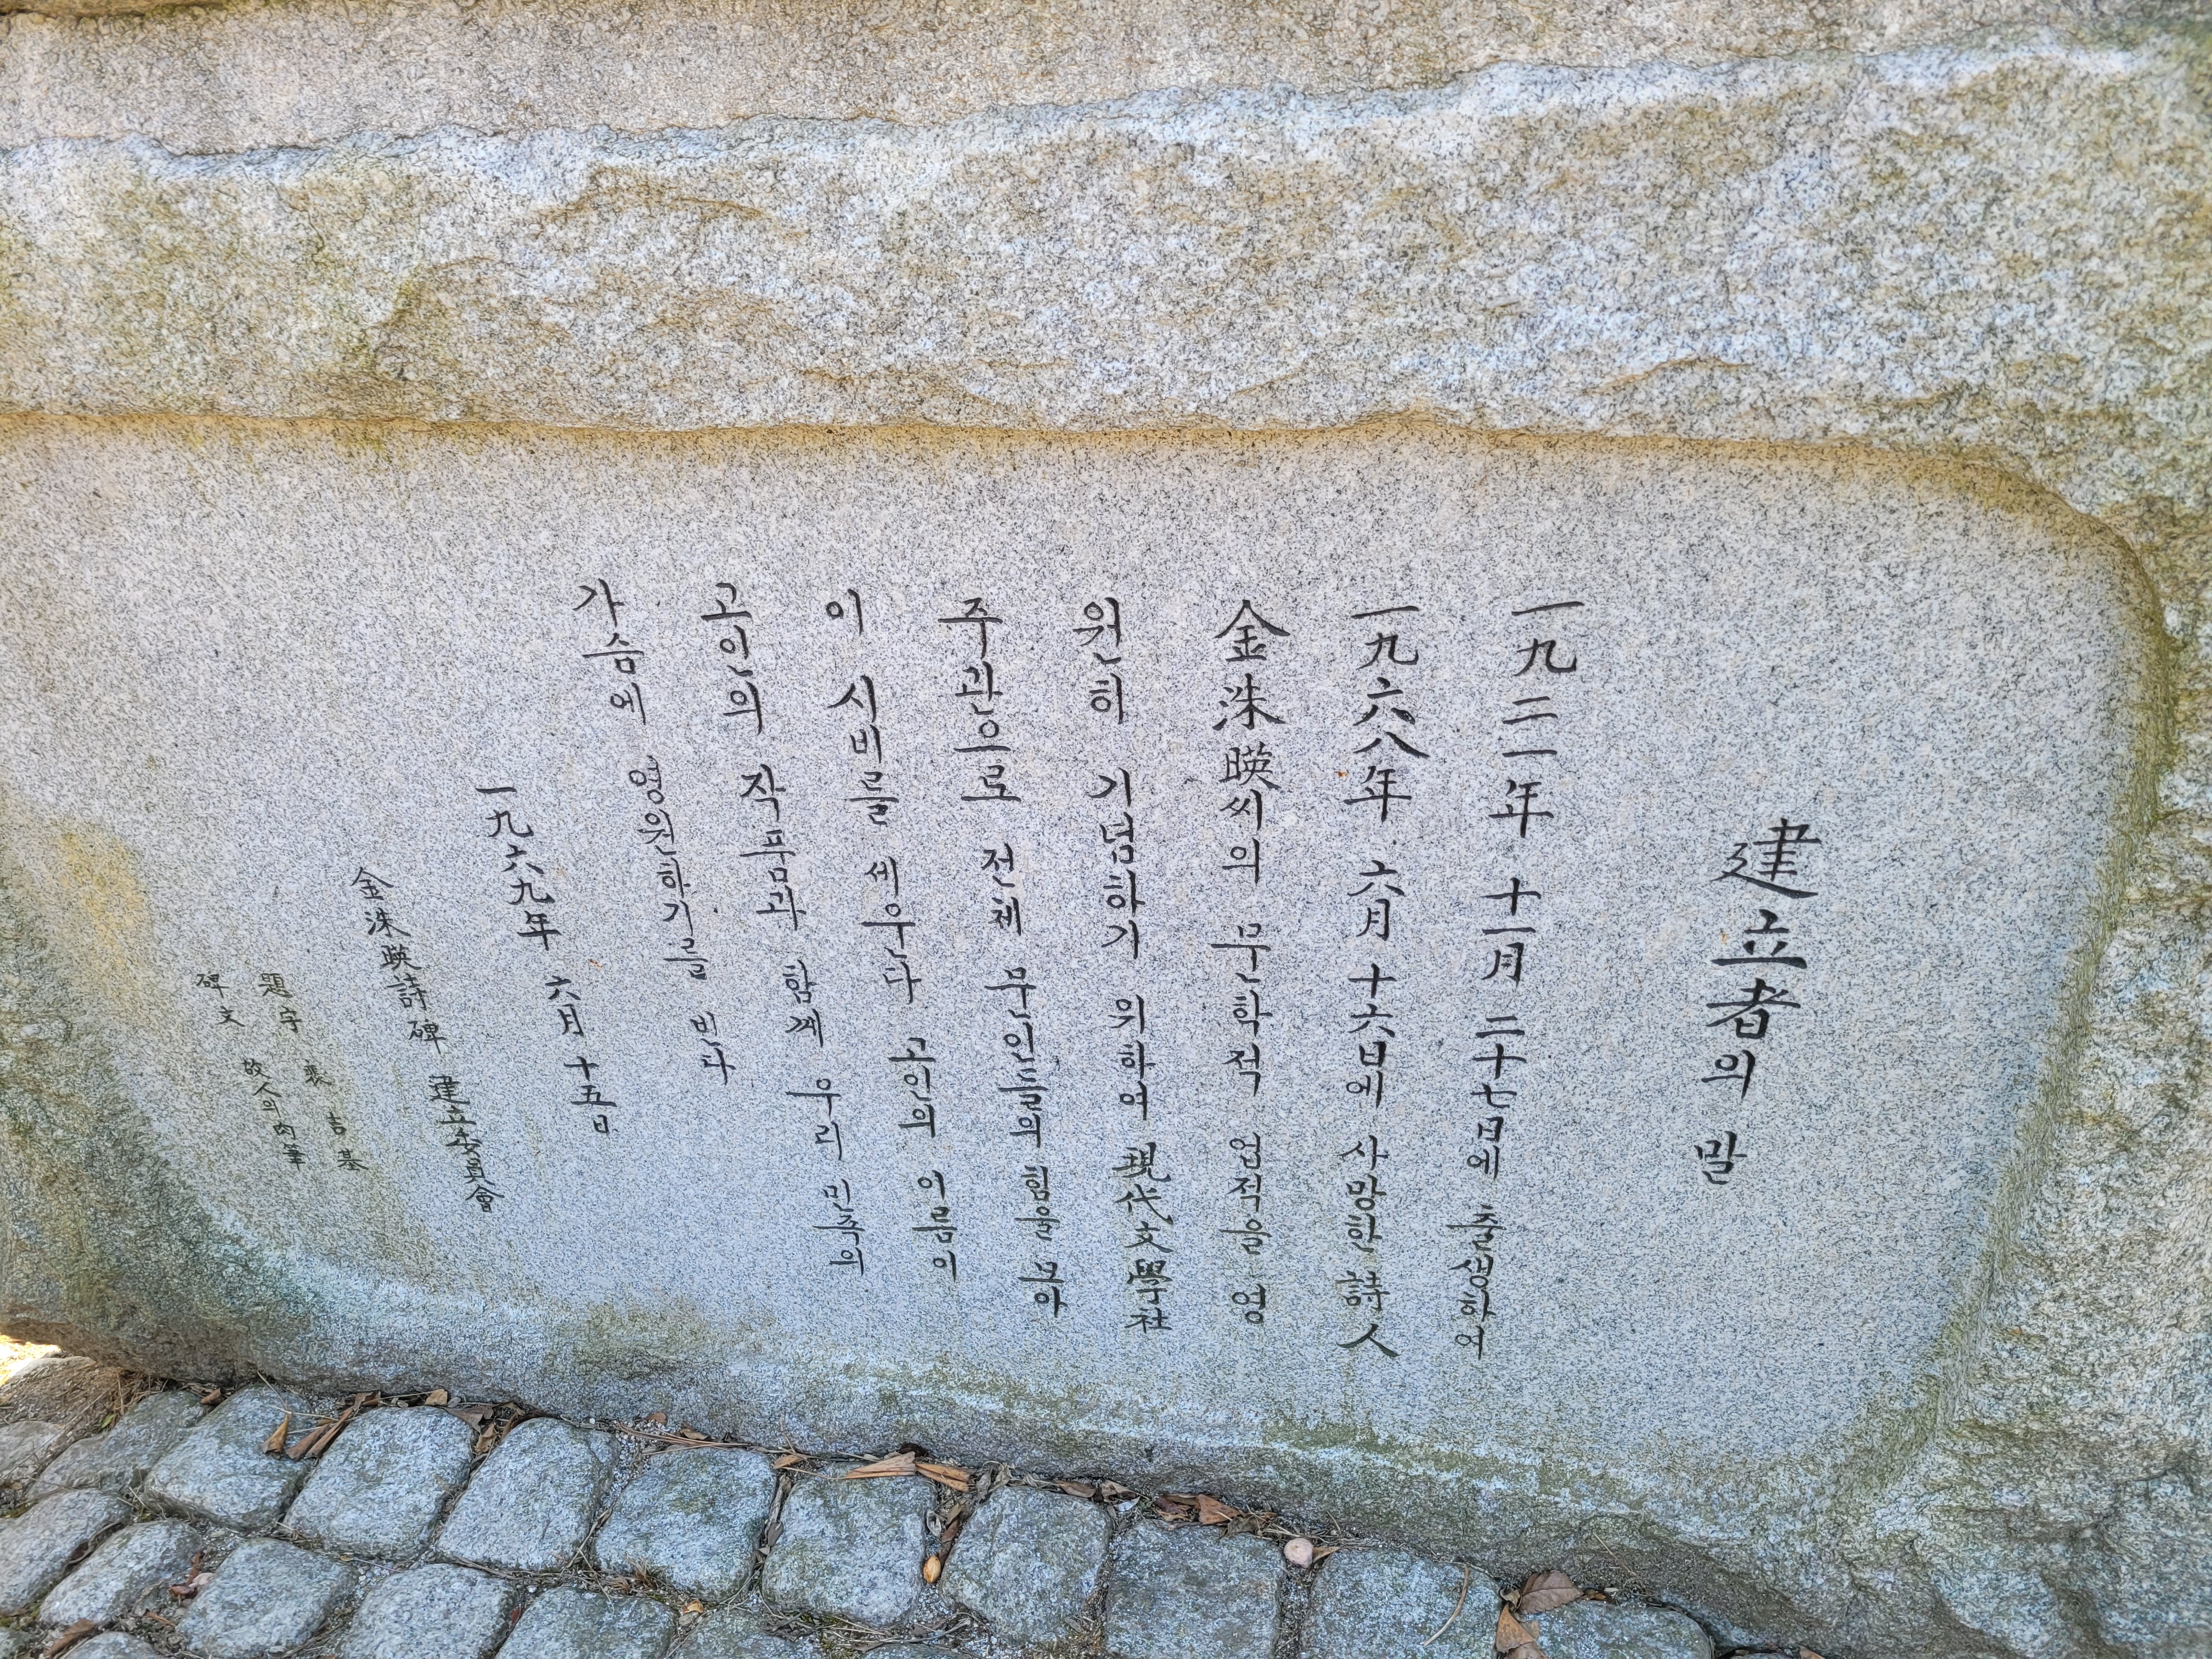 建立者의 말
一九二一年 十一月 二十七日에 출생하여
一九六八年 六月 十六日에 사망한 詩人
金洙暎씨의 문학적 업적을 영
원히 기념하기 위하여 現代文學社
주관으로 전체 문인들의 힘을 모아
이 시비를 세운다 고인의 이름이
고인의 작품과 함께 우리 민족의
가슴에 영원하기를 빈다
一九六九年 六月 十五日
金洙暎詩碑 建立委員會
題字 裵吉基
碑文 故人의 肉筆